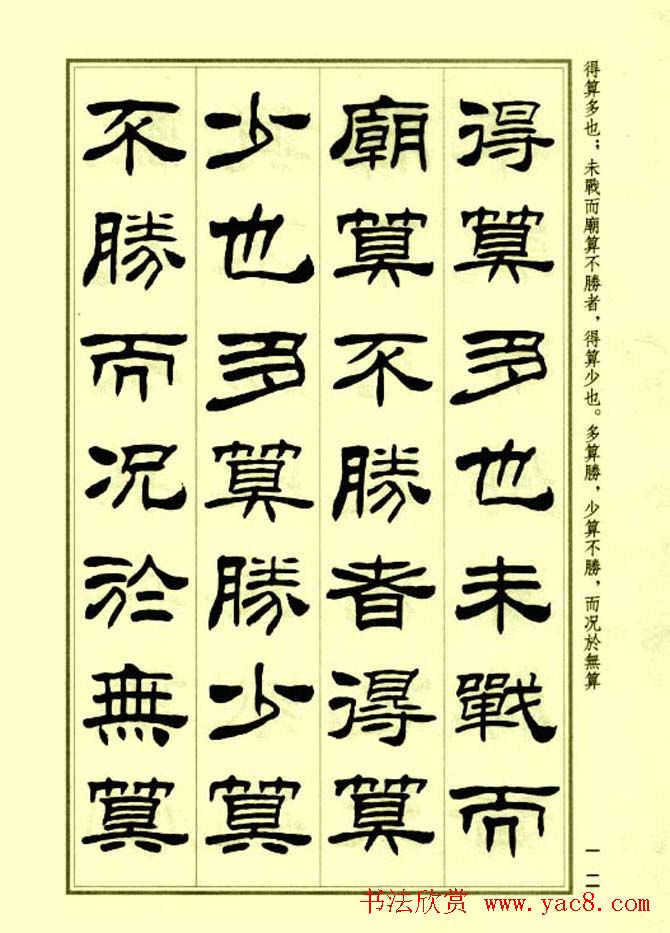 得算多也；未戰而廟算不勝者，得算少也。多算勝，少算不勝，而况於無算
得筭多也未戰而
廟筭不勝者得筭
少也多筭勝少筭
不勝而况於無筭
一二
书法欣赏 www.yac8.com